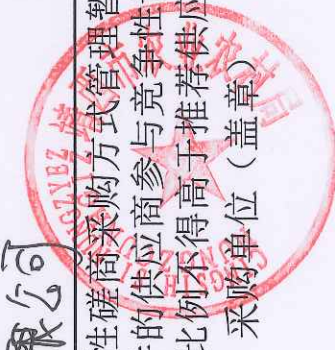 公司
性磋商采购方式管理暂
的供应商参与竞争性
比例不得高于推荐供应
采购单位（盖章）
农村局